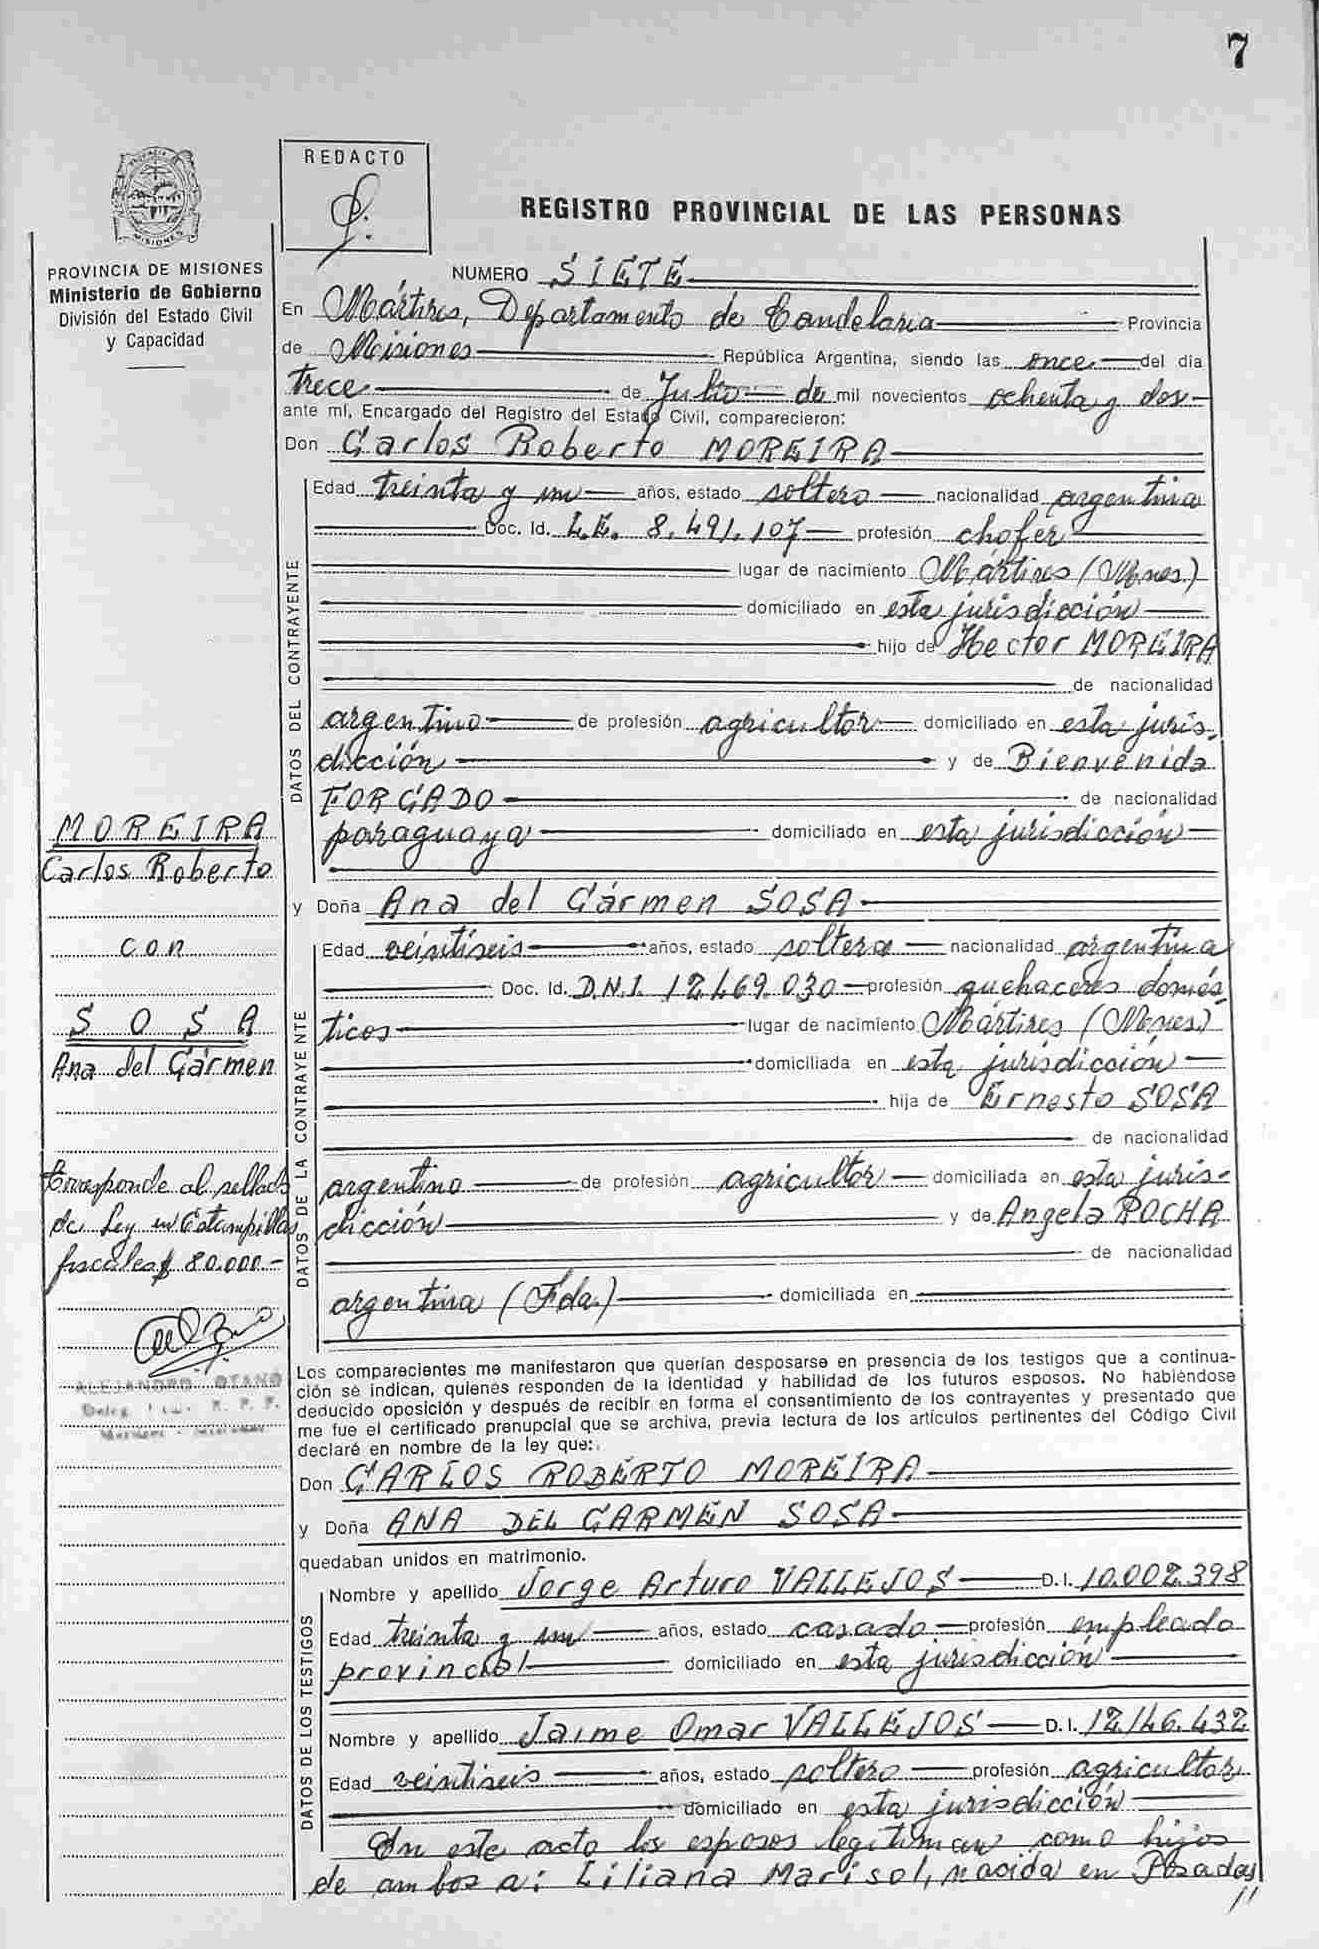 7
REDACTO
REGISTRO PROVINCIAL DE LAS PERSONAS
PROVINCIA DE MISIONES
Ministerio de Gobierno
División del Estado Civil
y Capacidad
NUMERO SIETE
En Mártires, Departamento de Candelaria Provincia
de Misiones República Argentina, siendo las once del día
trece de Julio de mil novecientos ochenta y dos
ante mí, Encargado del Registro del Estado Civil, comparecieron:
Don Carlos Roberto MOREIRA
DATOS DEL CONTRAYENTE
Edad treinta y un años, estado soltero nacionalidad argentina
Doc. Id. L.E. 8.491.107 profesión chofer
lugar de nacimiento Mártires (Mnes.)
domiciliado en esta jurisdicción
hijo de Hector MOREIRA
de nacionalidad
argentino de profesión agricultor domiciliado en esta juris-
dicción y de Bienvenida
FORCADO de nacionalidad
paraguaya domiciliado en esta jurisdicción
MOREIRA
Carlos Roberto
con
SOSA
Ana del Cármen
y Doña Ana del Cármen SOSA
DATOS DE LA CONTRAYENTE
Edad veintiseis años, estado soltera nacionalidad argentina
Doc. Id. D.N.I. 12.469.030 profesión quehaceres domés-
ticos lugar de nacimiento Mártires (Mnes.)
domiciliada en esta jurisdicción
hija de Ernesto SOSA
de nacionalidad
argentino de profesión agricultor domiciliada en esta juris-
dicción y de Angela ROCHA
de nacionalidad
argentina (Fda.) domiciliada en
Corresponde al sellado
de Ley en Estampillas
fiscales $ 80.000.-
ALEJANDRO OTAÑO
Los comparecientes me manifestaron que querían desposarse en presencia de los testigos que a continua-
ción se indican, quienes responden de la identidad y habilidad de los futuros esposos. No habiéndose
deducido oposición y después de recibir en forma el consentimiento de los contrayentes y presentado que
me fue el certificado prenupcial que se archiva, previa lectura de los artículos pertinentes del Código Civil
declaré en nombre de la ley que:
Don CARLOS ROBERTO MOREIRA
y Doña ANA DEL CARMEN SOSA
quedaban unidos en matrimonio.
DATOS DE LOS TESTIGOS
Nombre y apellido Jorge Arturo VALLEJOS D.I. 10.002.398
Edad treinta y un años, estado casado profesión empleado
provincial domiciliado en esta jurisdicción
Nombre y apellido Jaime Omar VALLEJOS D.I. 12.146.432
Edad veintiseis años, estado soltero profesión agricultor
domiciliado en esta jurisdicción
En este acto los esposos legitiman como hijos
de ambos a: Liliana Marisol, nacida en Posadas
//